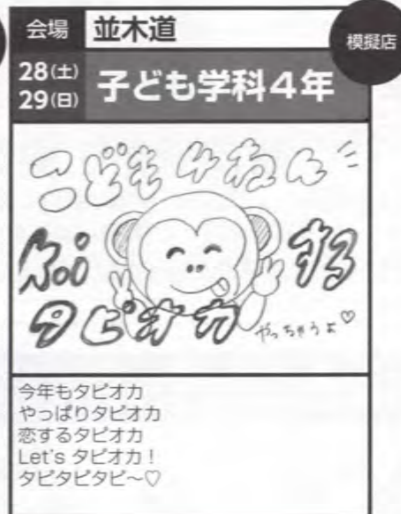 会場 並木道
模擬店
28(土)
29(日)
子ども学科4年
こども4ねん
koiする
タピオカ
やっちゃうよ♡
今年もタピオカ
やっぱりタピオカ
恋するタピオカ
Let's タピオカ！
タピタピタピ～♡